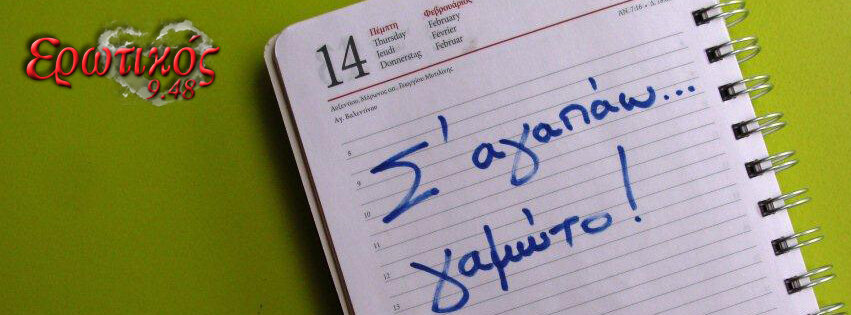 Ερωτικός
9.48
14
Πέμπτη
Thursday
Jeudi
Donnerstag
Φεβρουάριος
February
Février
Februar
ΑΝ. 7:16 •
Αυξεντίου, Μάρωνος οσ. Γεωργίου Μυτιλήνης
Αγ. Βαλεντίνου
8
9
10
11
12
13
Σ' αγαπάω...
γαμώτο!